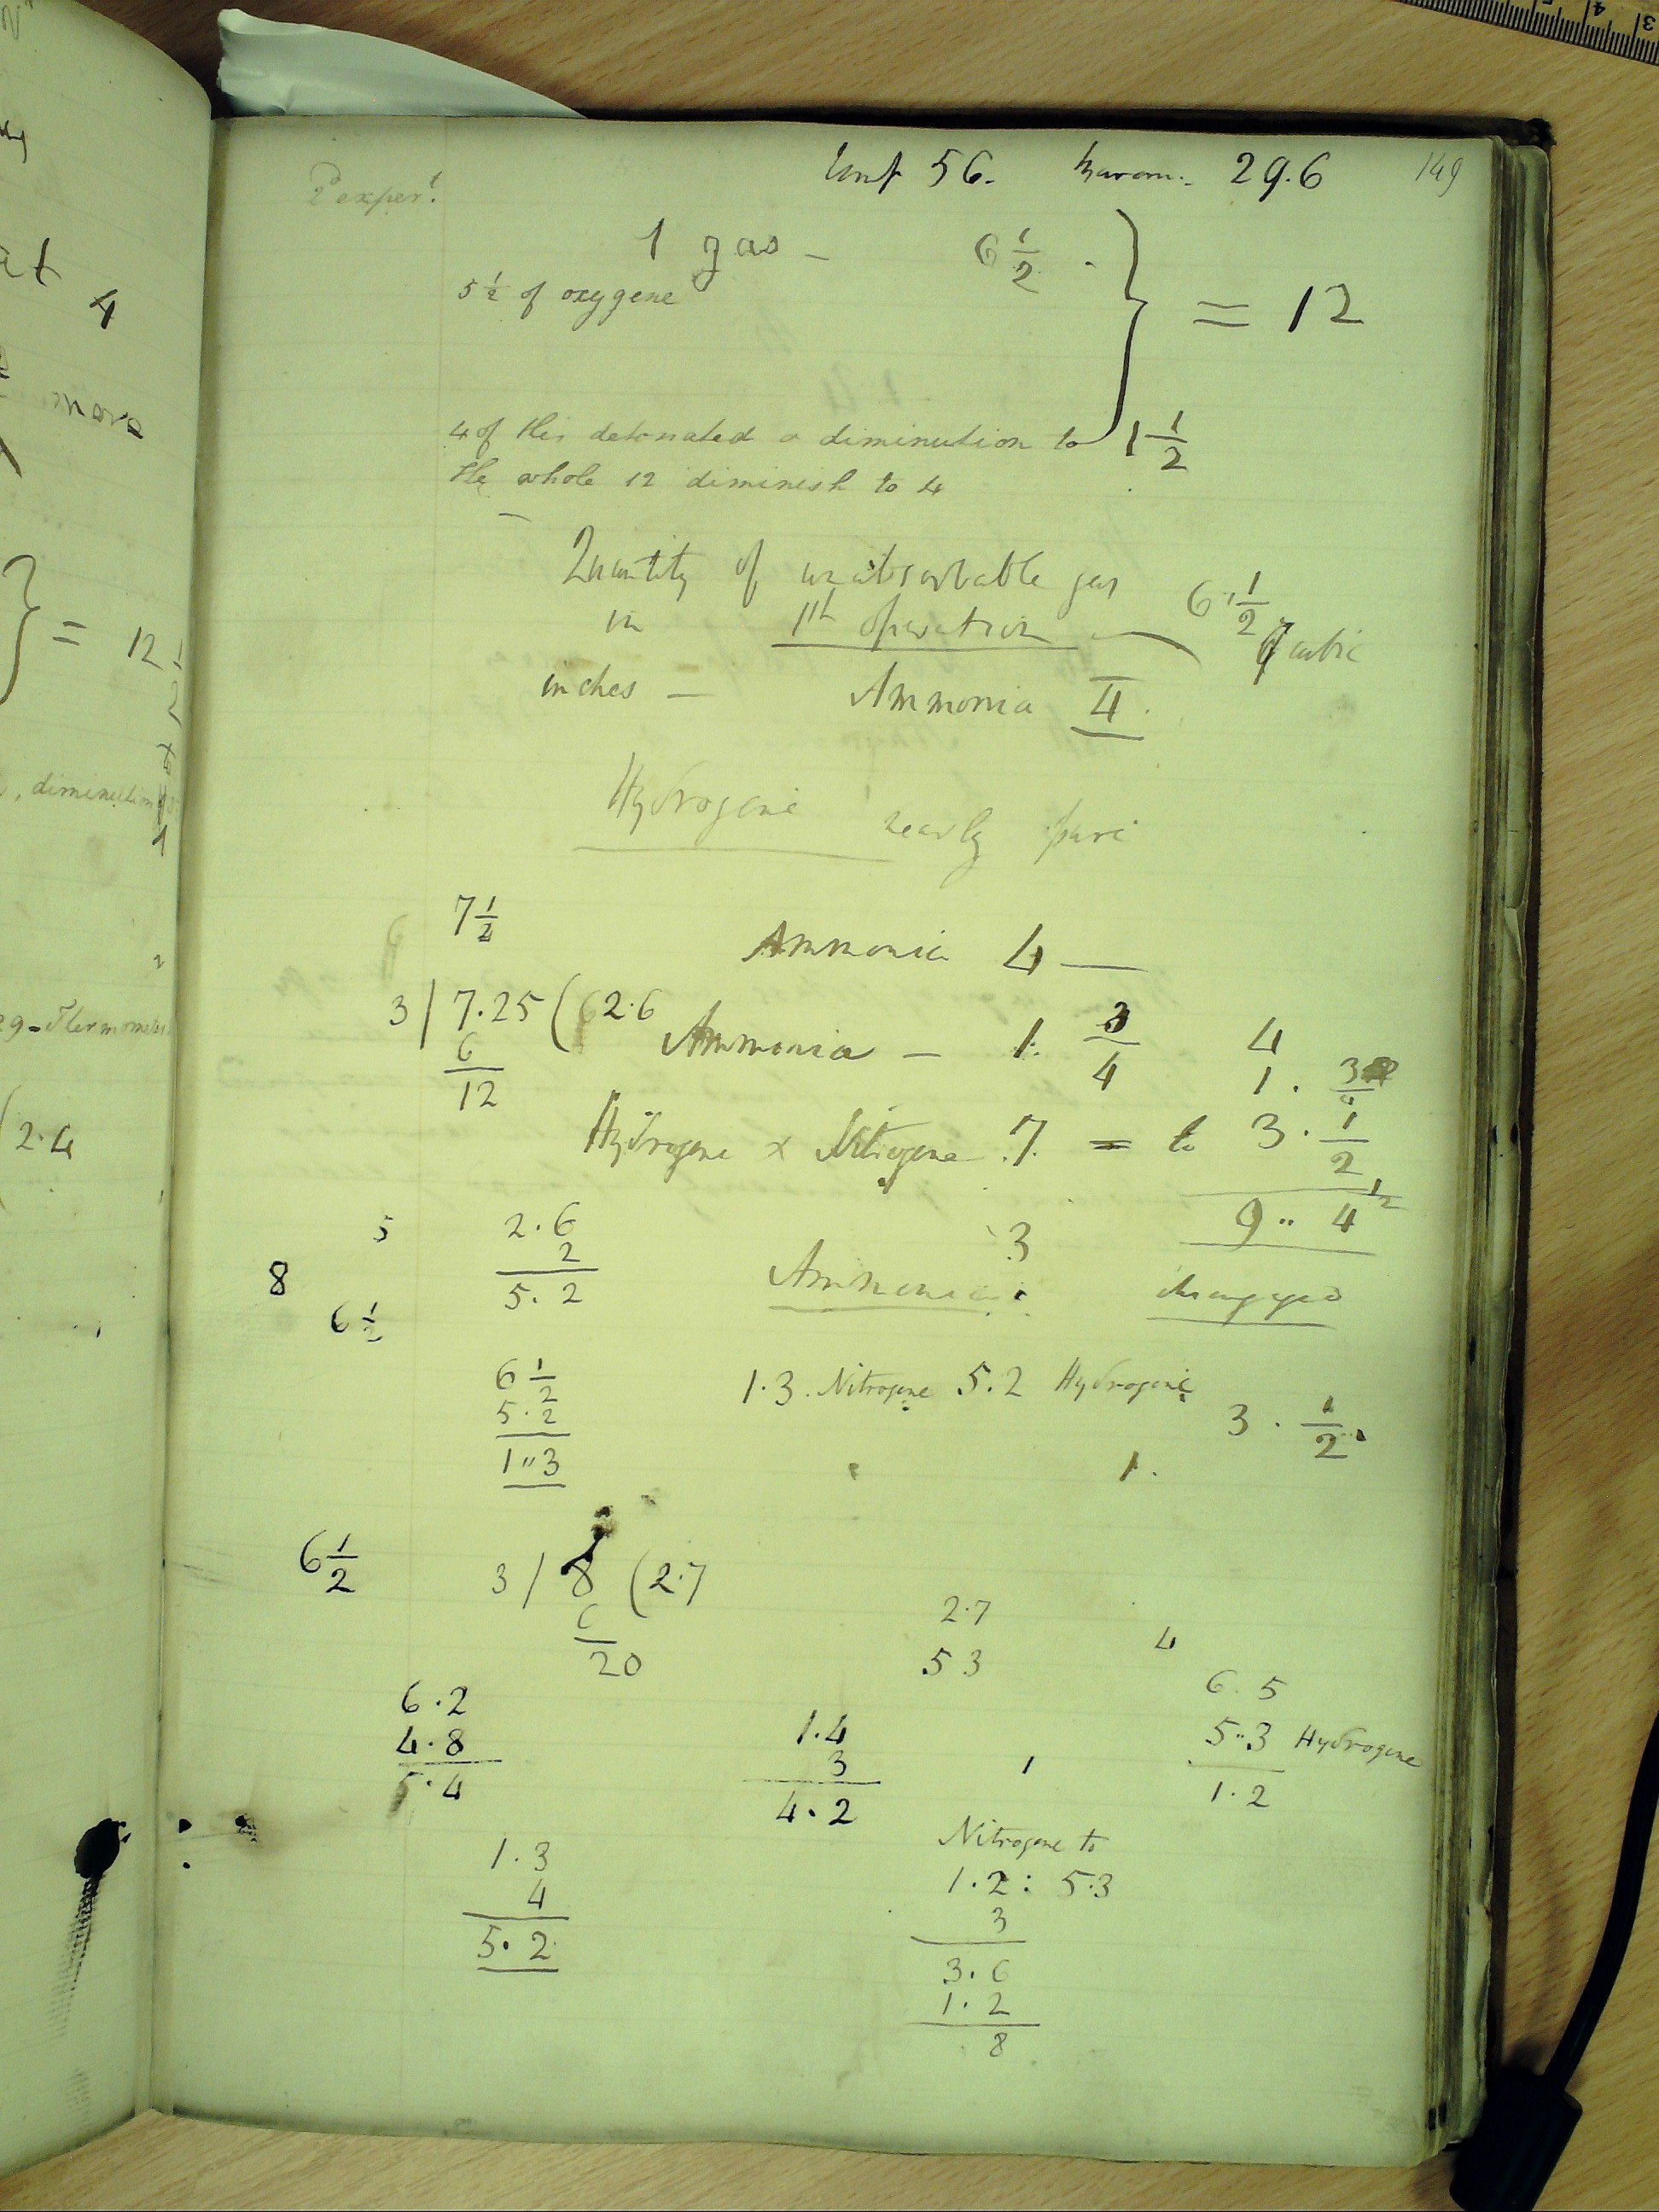 2d expert.
Temp 56. Barom.. 29.6
149
1 gas — 6 1/2 .
5 1/2 of oxygene
} = 12
4 of this detonated a diminution to 1 1/2
the whole 12 diminish to 4
Quantity of unabsorbable gas
in 1st operation — 6 1/2
cubic
inches — Ammonia 4.
Hydrogene nearly pure
7 1/2
Ammonia 4 —
3 / 7.25 ( 2.6
6
12
Ammonia — 1. 3/4
4
1. 3
Hydrogene x Nitrogene 7. = to 3. 1/2
9.. 4 1/2
5
8
6 1/2
2.6
2
5.2
3
Ammonia.
6 1/2
5.2
1..3
1.3. Nitrogene 5.2 Hydrogene
3. 1/2.
1.
6 1/2
3 / 8 ( 2.7
6
20
2.7
5 3
4
6.2
4.8
5.4
1.4
3
4.2
1
6.5
5..3 Hydrogene
1.2
1.3
4
5.2
Nitrogene to
1.2 : 5.3
3
3.6
1.2
8
at
4
more
} = 12
, diminution
29 - Thermometer
( 2.4